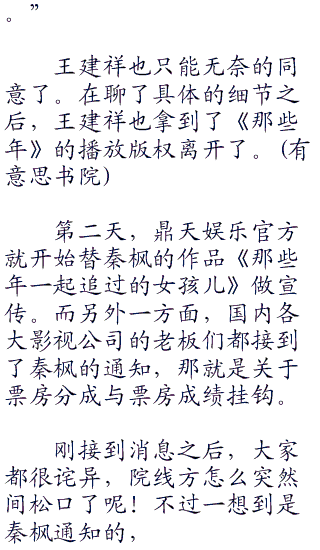 。”
王建祥也只能无奈的同
意了。在聊了具体的细节之
后，王建祥也拿到了《那些
年》的播放版权离开了。(有
意思书院)
第二天，鼎天娱乐官方
就开始替秦枫的作品《那些
年一起追过的女孩儿》做宣
传。而另外一方面，国内各
大影视公司的老板们都接到
了秦枫的通知，那就是关于
票房分成与票房成绩挂钩。
刚接到消息之后，大家
都很诧异，院线方怎么突然
间松口了呢！不过一想到是
秦枫通知的，